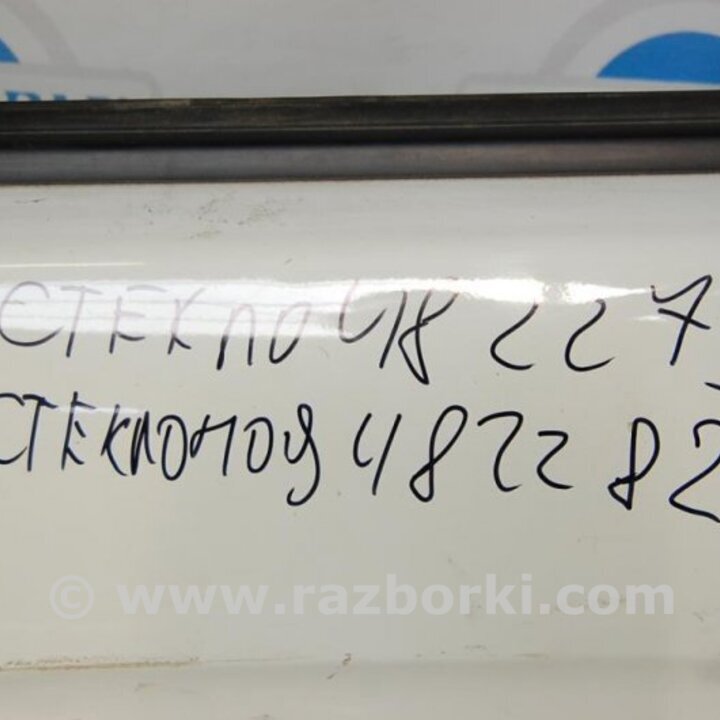 СТЕКЛО 48227
СТЕКЛОПОД 482282
© www.razborki.com